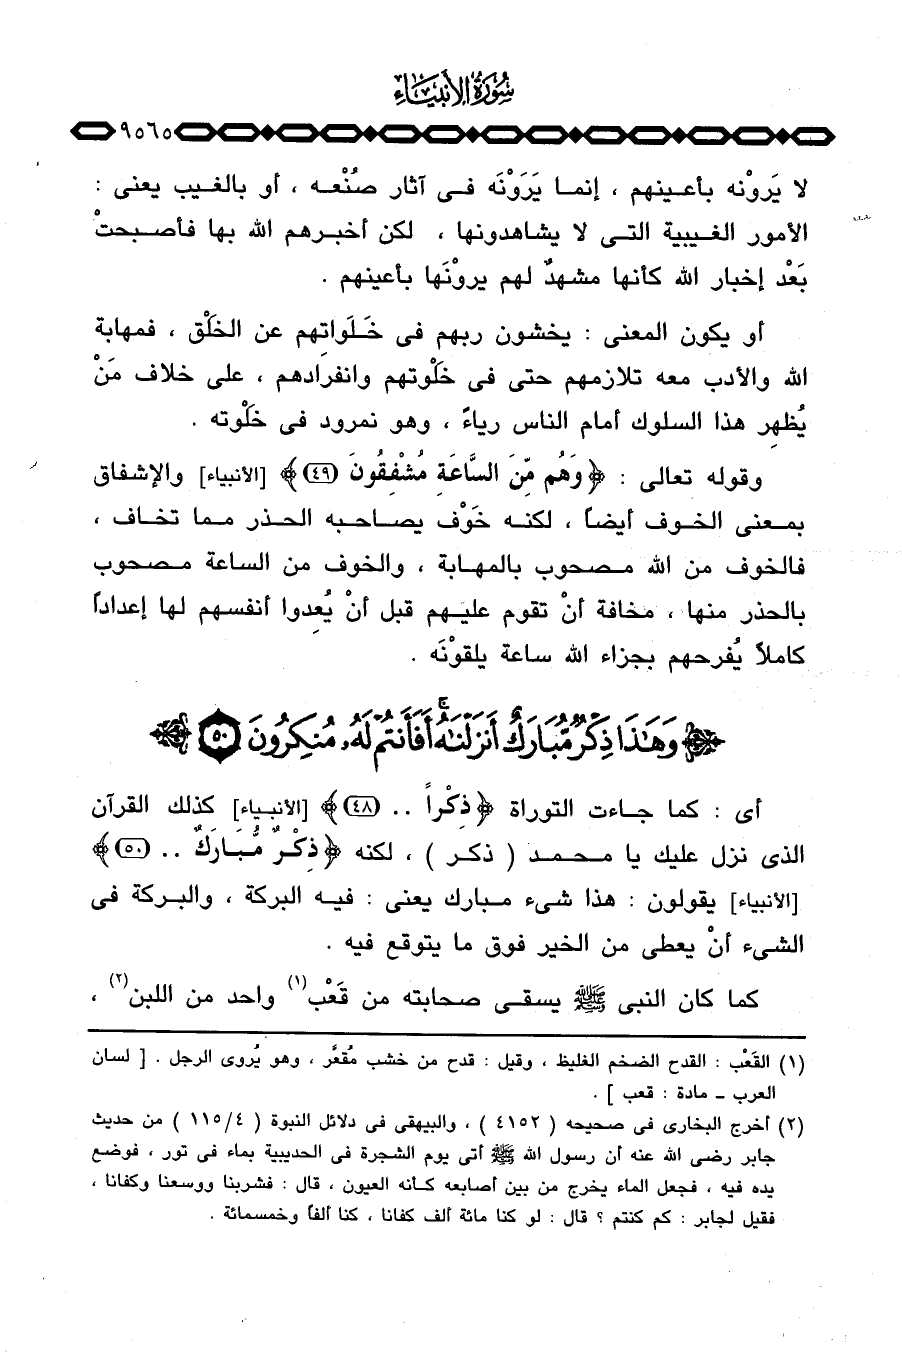 سُورَةُ الأنبيَاء
٩٥٦٥
لا يَروْنه بأعينهم ، إنما يَرَوْنَه فى آثار صُنْعه ، أو بالغيب يعنى :
الأمور الغيبية التى لا يشاهدونها ، لكن أخبرهم الله بها فأصبحتْ
بَعْد إخبار الله كأنها مشهدٌ لهم يرونَها بأعينهم .
أو يكون المعنى : يخشون ربهم فى خَلَواتِهم عن الخَلْق ، فمهابة
الله والأدب معه تلازمهم حتى فى خَلْوتهم وانفرادهم ، على خلاف مَنْ
يُظهِر هذا السلوك أمام الناس رياءً ، وهو نمرود فى خَلْوته .
وقوله تعالى : ﴿ وَهُم مِّنَ السَّاعَةِ مُشْفِقُونَ (٤٩) ﴾ [الأنبياء] والإشفاق
بمعنى الخوف أيضاً ، لكنه خَوْف يصاحبه الحذر مما تخاف ،
فالخوف من الله مصحوب بالمهابة ، والخوف من الساعة مصحوب
بالحذر منها ، مخافة أنْ تقوم عليهم قبل أنْ يُعِدوا أنفسهم لها إعداداً
كاملاً يُفرحهم بجزاء الله ساعة يلقوْنَه .
﴿ وَهَٰذَا ذِكْرٌ مُّبَارَكٌ أَنزَلْنَٰهُ ۚ أَفَأَنتُمْ لَهُۥ مُنكِرُونَ (٥٠) ﴾
أى : كما جاءت التوراة ﴿ ذِكْراً .. (٤٨) ﴾ [الأنبياء] كذلك القرآن
الذى نزل عليك يا محمد ( ذكر ) ، لكنه ﴿ ذِكْرٌ مُّبَارَكٌ .. (٥٠) ﴾
[الأنبياء] يقولون : هذا شىء مبارك يعنى : فيه البركة ، والبركة فى
الشىء أنْ يعطى من الخير فوق ما يتوقع فيه .
كما كان النبى ﷺ يسقى صحابته من قَعْب(١) واحد من اللبن(٢) ،
(١) القَعْب : القدح الضخم الغليظ ، وقيل : قدح من خشب مُقعَّر ، وهو يُروى الرجل . [ لسان
العرب ــ مادة : قعب ] .
(٢) أخرج البخارى فى صحيحه ( ٤١٥٢ ) ، والبيهقى فى دلائل النبوة ( ١١٥/٤ ) من حديث
جابر رضى الله عنه أن رسول الله ﷺ أتى يوم الشجرة فى الحديبية بماء فى تور ، فوضع
يده فيه ، فجعل الماء يخرج من بين أصابعه كأنه العيون ، قال : فشربنا ووسعنا وكفانا ،
فقيل لجابر : كم كنتم ؟ قال : لو كنا مائة ألف كفانا ، كنا ألفاً وخمسمائة .